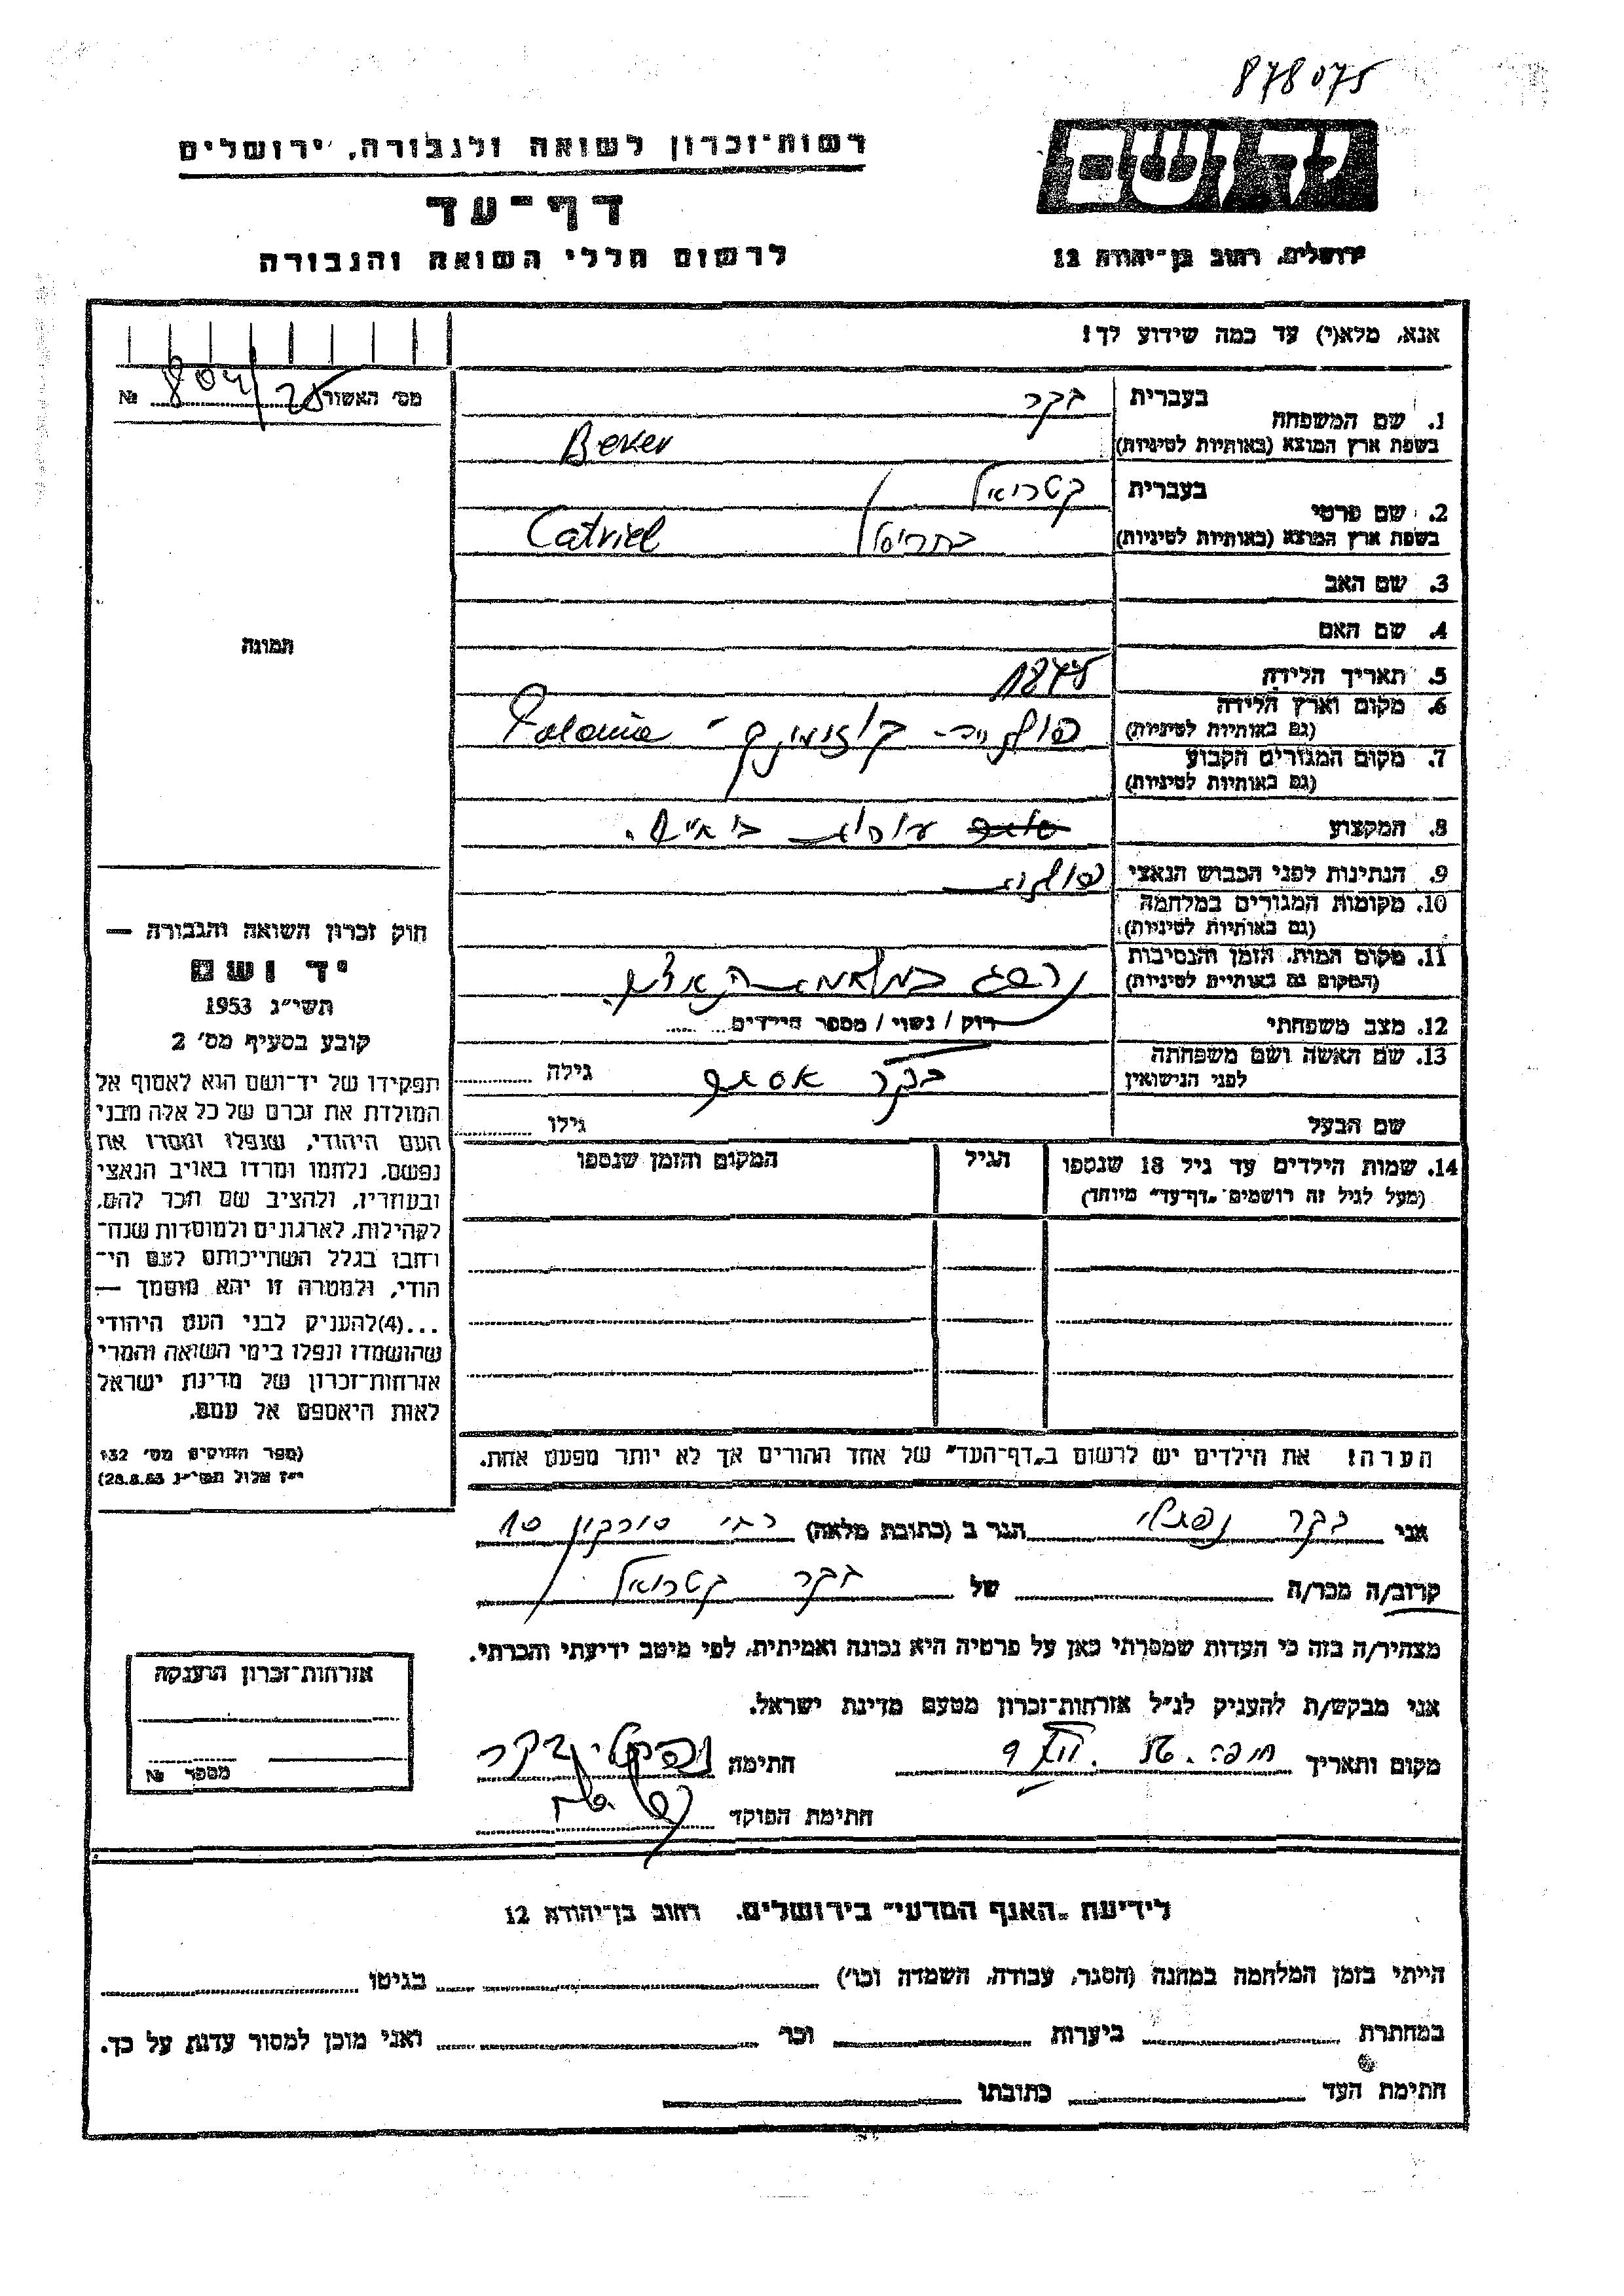 878075
רשות-זכרון לשואה ולגבורה, ירושלים
דף-עד
לרשום חללי השואה והגבורה
יד ושם
ירושלים, רחוב בן-יהודה 12
אנא, מלא(י) עד כמה שידוע לך!
מס' האשור № 804/25
1. שם המשפחה
בעברית בקר
בשפת ארץ המוצא (באותיות לטיניות) Beker
2. שם פרטי
בעברית קטריאל
בשפת ארץ המוצא (באותיות לטיניות) כתריאל Catriel
3. שם האב
4. שם האם
5. תאריך הלידה 1875
6. מקום וארץ הלידה
(גם באותיות לטיניות) פולניה - Polania
7. מקום המגורים הקבוע
(גם באותיות לטיניות)
8. המקצוע
9. הנתינות לפני הכבוש הנאצי פולנית
10. מקומות המגורים במלחמה
(גם באותיות לטיניות)
11. מקום המות, הזמן והנסיבות
(המקום גם באותיות לטיניות) נהרג במלחמת הנאצים.
12. מצב משפחתי רווק / נשוי / מספר הילדים
13. שם האשה ושם משפחתה
לפני הנישואין בקר אסתר גילה
שם הבעל גילו
14. שמות הילדים עד גיל 18 שנספו
(מעל לגיל זה רושמים "דף-עד" מיוחד)
הגיל
המקום והזמן שנספו
הערה! את הילדים יש לרשום ב"דף-העד" של אחד ההורים אך לא יותר מפעם אחת.
תמונה
חוק זכרון השואה והגבורה —
יד ושם
תשי"ג 1953
קובע בסעיף מס' 2
תפקידו של יד-ושם הוא לאסוף אל
המולדת את זכרם של כל אלה מבני
העם היהודי, שנפלו ומסרו את
נפשם, נלחמו ומרדו באויב הנאצי
ובעוזריו, ולהציב שם וזכר להם,
לקהילות, לארגונים ולמוסדות שנח-
רחבו בגלל השתייכותם לעם הי-
הודי, ולמטרה זו יהא מוסמך —
...(4)להעניק לבני העם היהודי
שהושמדו ונפלו בימי השואה והמרי
אזרחות-זכרון של מדינת ישראל
לאות היאספם אל עמם.
(ספר החוקים מס' 132
י"ז אלול תשי"ג 28.8.53)
אני בקר נפתלי הגר ב (כתובת מלאה) 10
קרוב/ה מכר/ה של בקר קטריאל
מצהיר/ה בזה כי העדות שמסרתי כאן על פרטיה היא נכונה ואמיתית, לפי מיטב ידיעתי והכרתי.
אני מבקש/ת להעניק לנ"ל אזרחות-זכרון מטעם מדינת ישראל.
מקום ותאריך חיפה. חתימה נפתלי בקר
חתימת הפוקד
אזרחות-זכרון הוענקה
מספר №
לידיעת "האגף המדעי" בירושלים, רחוב בן-יהודה 12
הייתי בזמן המלחמה במחנה (הסגר, עבודה, השמדה וכו') בגיטו
במחתרת ביערות וכו' ואני מוכן למסור עדות על כך.
חתימת העד כתובתו